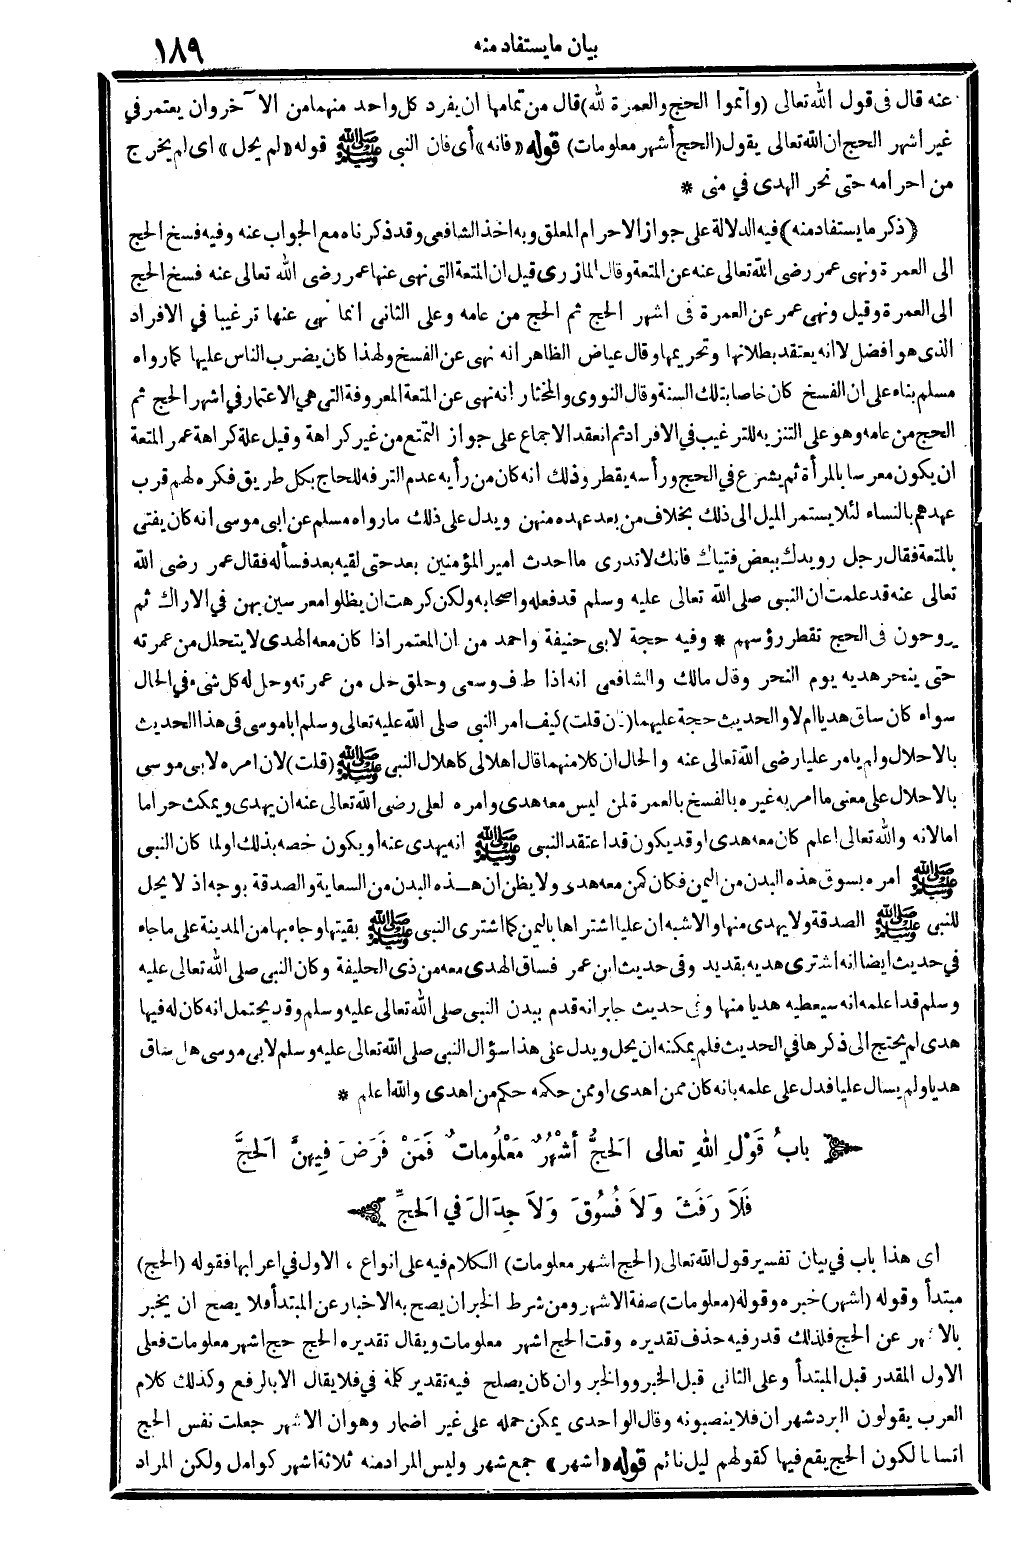 بيان ما يستفاد منه ١٨٩
عنه قال فى قول الله تعالى (واتموا الحج والعمرة لله) قال من تمامها ان يفرد كل واحد منهما من الا خر وان يعتمر في
غير اشهر الحج ان الله تعالى يقول (الحج أشهر معلومات) قوله «فانه» أى فان النبى ﷺ قوله «لم يحل» اى لم يخرج
من احرامه حتى نحر الهدى في منى *
(ذكر ما يستفاد منه) فيه الدلالة على جواز الاحرام المعلق وبه اخذ الشافعى وقد ذكرناه مع الجواب عنه وفيه فسخ الحج
الى العمرة ونهى عمر رضى الله تعالى عنه عن المتعة وقال المازرى قيل ان المتعة التى نهى عنها عمر رضى الله تعالى عنه فسخ الحج
الى العمرة وقيل ونهى عمر عن العمرة فى اشهر الحج ثم الحج من عامه وعلى الثانى انما نهى عنها ترغيبا في الافراد
الذى هو افضل لا انه يعتقد بطلانها وتحريمها وقال عياض الظاهر انه نهى عن الفسخ ولهذا كان يضرب الناس عليها كما رواه
مسلم بناء على ان الفسخ كان خاصا بتلك السنة وقال النووى والمختار انه نهى عن المتعة المعروفة التى هي الاعتمار في اشهر الحج ثم
الحج من عامه وهو على التنزيه للترغيب في الافراد ثم انعقد الاجماع على جواز التمتع من غير كراهة وقيل علة كراهة عمر المتعة
ان يكون معرسا بالمرأة ثم يشرع في الحج ورأسه يقطر وذلك انه كان من رأيه عدم الترفه للحاج بكل طريق فكره لهم قرب
عهدهم بالنساء لئلا يستمر الميل الى ذلك بخلاف من بعد عهده منهن ويدل على ذلك ما رواه مسلم عن ابى موسى انه كان يفتى
بالمتعة فقال رجل رويدك ببعض فتياك فانك لاتدرى ما احدث امير المؤمنين بعد حتى لقيه بعد فسأله فقال عمر رضى الله
تعالى عنه قد علمت ان النبى صلى الله تعالى عليه وسلم قد فعله واصحابه ولكن كرهت ان يظلوا معرسين بهن في الاراك ثم
يروحون فى الحج تقطر رؤسهم * وفيه حجة لابى حنيفة واحمد من ان المعتمر اذا كان معه الهدى لا يتحلل من عمرته
حتى ينحر هديه يوم النحر وقال مالك والشافعى انه اذا طاف وسعى وحلق حل من عمرته وحل له كل شىء في الحال
سواء كان ساق هديا ام لا والحديث حجة عليهما (فان قلت) كيف امر النبى صلى الله عليه تعالى وسلم ابا موسى فى هذا الحديث
بالاحلال ولم يامر عليا رضى الله تعالى عنه والحال ان كلا منهما قال اهلالى كاهلال النبى ﷺ (قلت) لان امره لابى موسى
بالاحلال على معنى ما امر به غيره بالفسخ بالعمرة لمن ليس معه هدى وامره لعلى رضى الله تعالى عنه ان يهدى ويمكث حراما
اما لانه والله تعالى اعلم كان معه هدى او قد يكون قد اعتقد النبى ﷺ انه يهدى عنه أو يكون خصه بذلك او لما كان النبى
ﷺ امره بسوق هذه البدن من اليمن فكان كمن معه هدى ولا يظن ان هذه البدن من السعاية والصدقة بوجه اذ لا يحل
للنبى ﷺ الصدقة ولا يهدى منها والاشبه ان عليا اشتراها باليمن كما اشترى النبى ﷺ بقيتها وجاء بها من المدينة على ما جاء
في حديث ايضا انه اشترى هديه بقديد وفى حديث ابن عمر فساق الهدى معه من ذى الحليفة وكان النبى صلى الله تعالى عليه
وسلم قد اعلمه انه سيعطيه هديا منها وفى حديث جابر انه قدم ببدن النبى صلى الله تعالى عليه وسلم وقد يحتمل انه كان له فيها
هدى لم يحتج الى ذكرها في الحديث فلم يمكنه ان يحل ويدل على هذا سؤال النبى صلى الله تعالى عليه وسلم لابى موسى هل ساق
هديا ولم يسال عليا فدل على علمه بانه كان ممن اهدى او ممن حكمه حكم من اهدى والله اعلم *
بابُ قَوْلِ اللهِ تعالى الحَجُّ أشْهُرٌ مَعْلُوماتٌ فَمَنْ فَرَضَ فِيهِنَّ الحَجَّ
فَلَا رَفَثَ وَلَا فُسُوقَ وَلَا جِدَالَ في الحَجِّ
أى هذا باب في بيان تفسير قول الله تعالى (الحج اشهر معلومات) الكلام فيه على انواع ، الاول في اعرابها فقوله (الحج)
مبتدأ وقوله (اشهر) خبره وقوله (معلومات) صفة الاشهر ومن شرط الخبر ان يصح به الاخبار عن المبتدأ فلا يصح ان يخبر
بالاشهر عن الحج فلذلك قدر فيه حذف تقديره وقت الحج اشهر معلومات ويقال تقديره الحج حج اشهر معلومات فعلى
الاول المقدر قبل المبتدأ وعلى الثانى قبل الخبر والخبر وان كان يصلح فيه تقدير كلمة في فلا يقال الا بالرفع وكذلك كلام
العرب يقولون البرد شهران فلا ينصبونه وقال الواحدى يمكن حمله على غير اضمار وهو ان الاشهر جعلت نفس الحج
اتساعا لكون الحج يقع فيها كقولهم ليل نائم قوله «اشهر» جمع شهر وليس المراد منه ثلاثة اشهر كوامل ولكن المراد